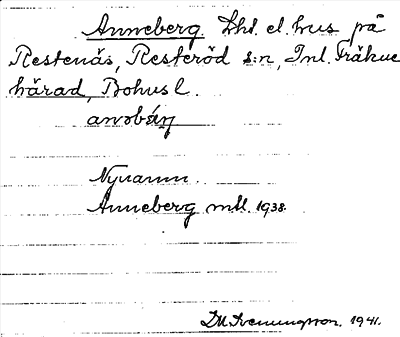 Anneberg. Lht el. hus på
Restenäs, Resteröd s:n, Inl. Fräkne
härad, Bohusl.
Nynamn.
Anneberg mtl. 1938.
1941.